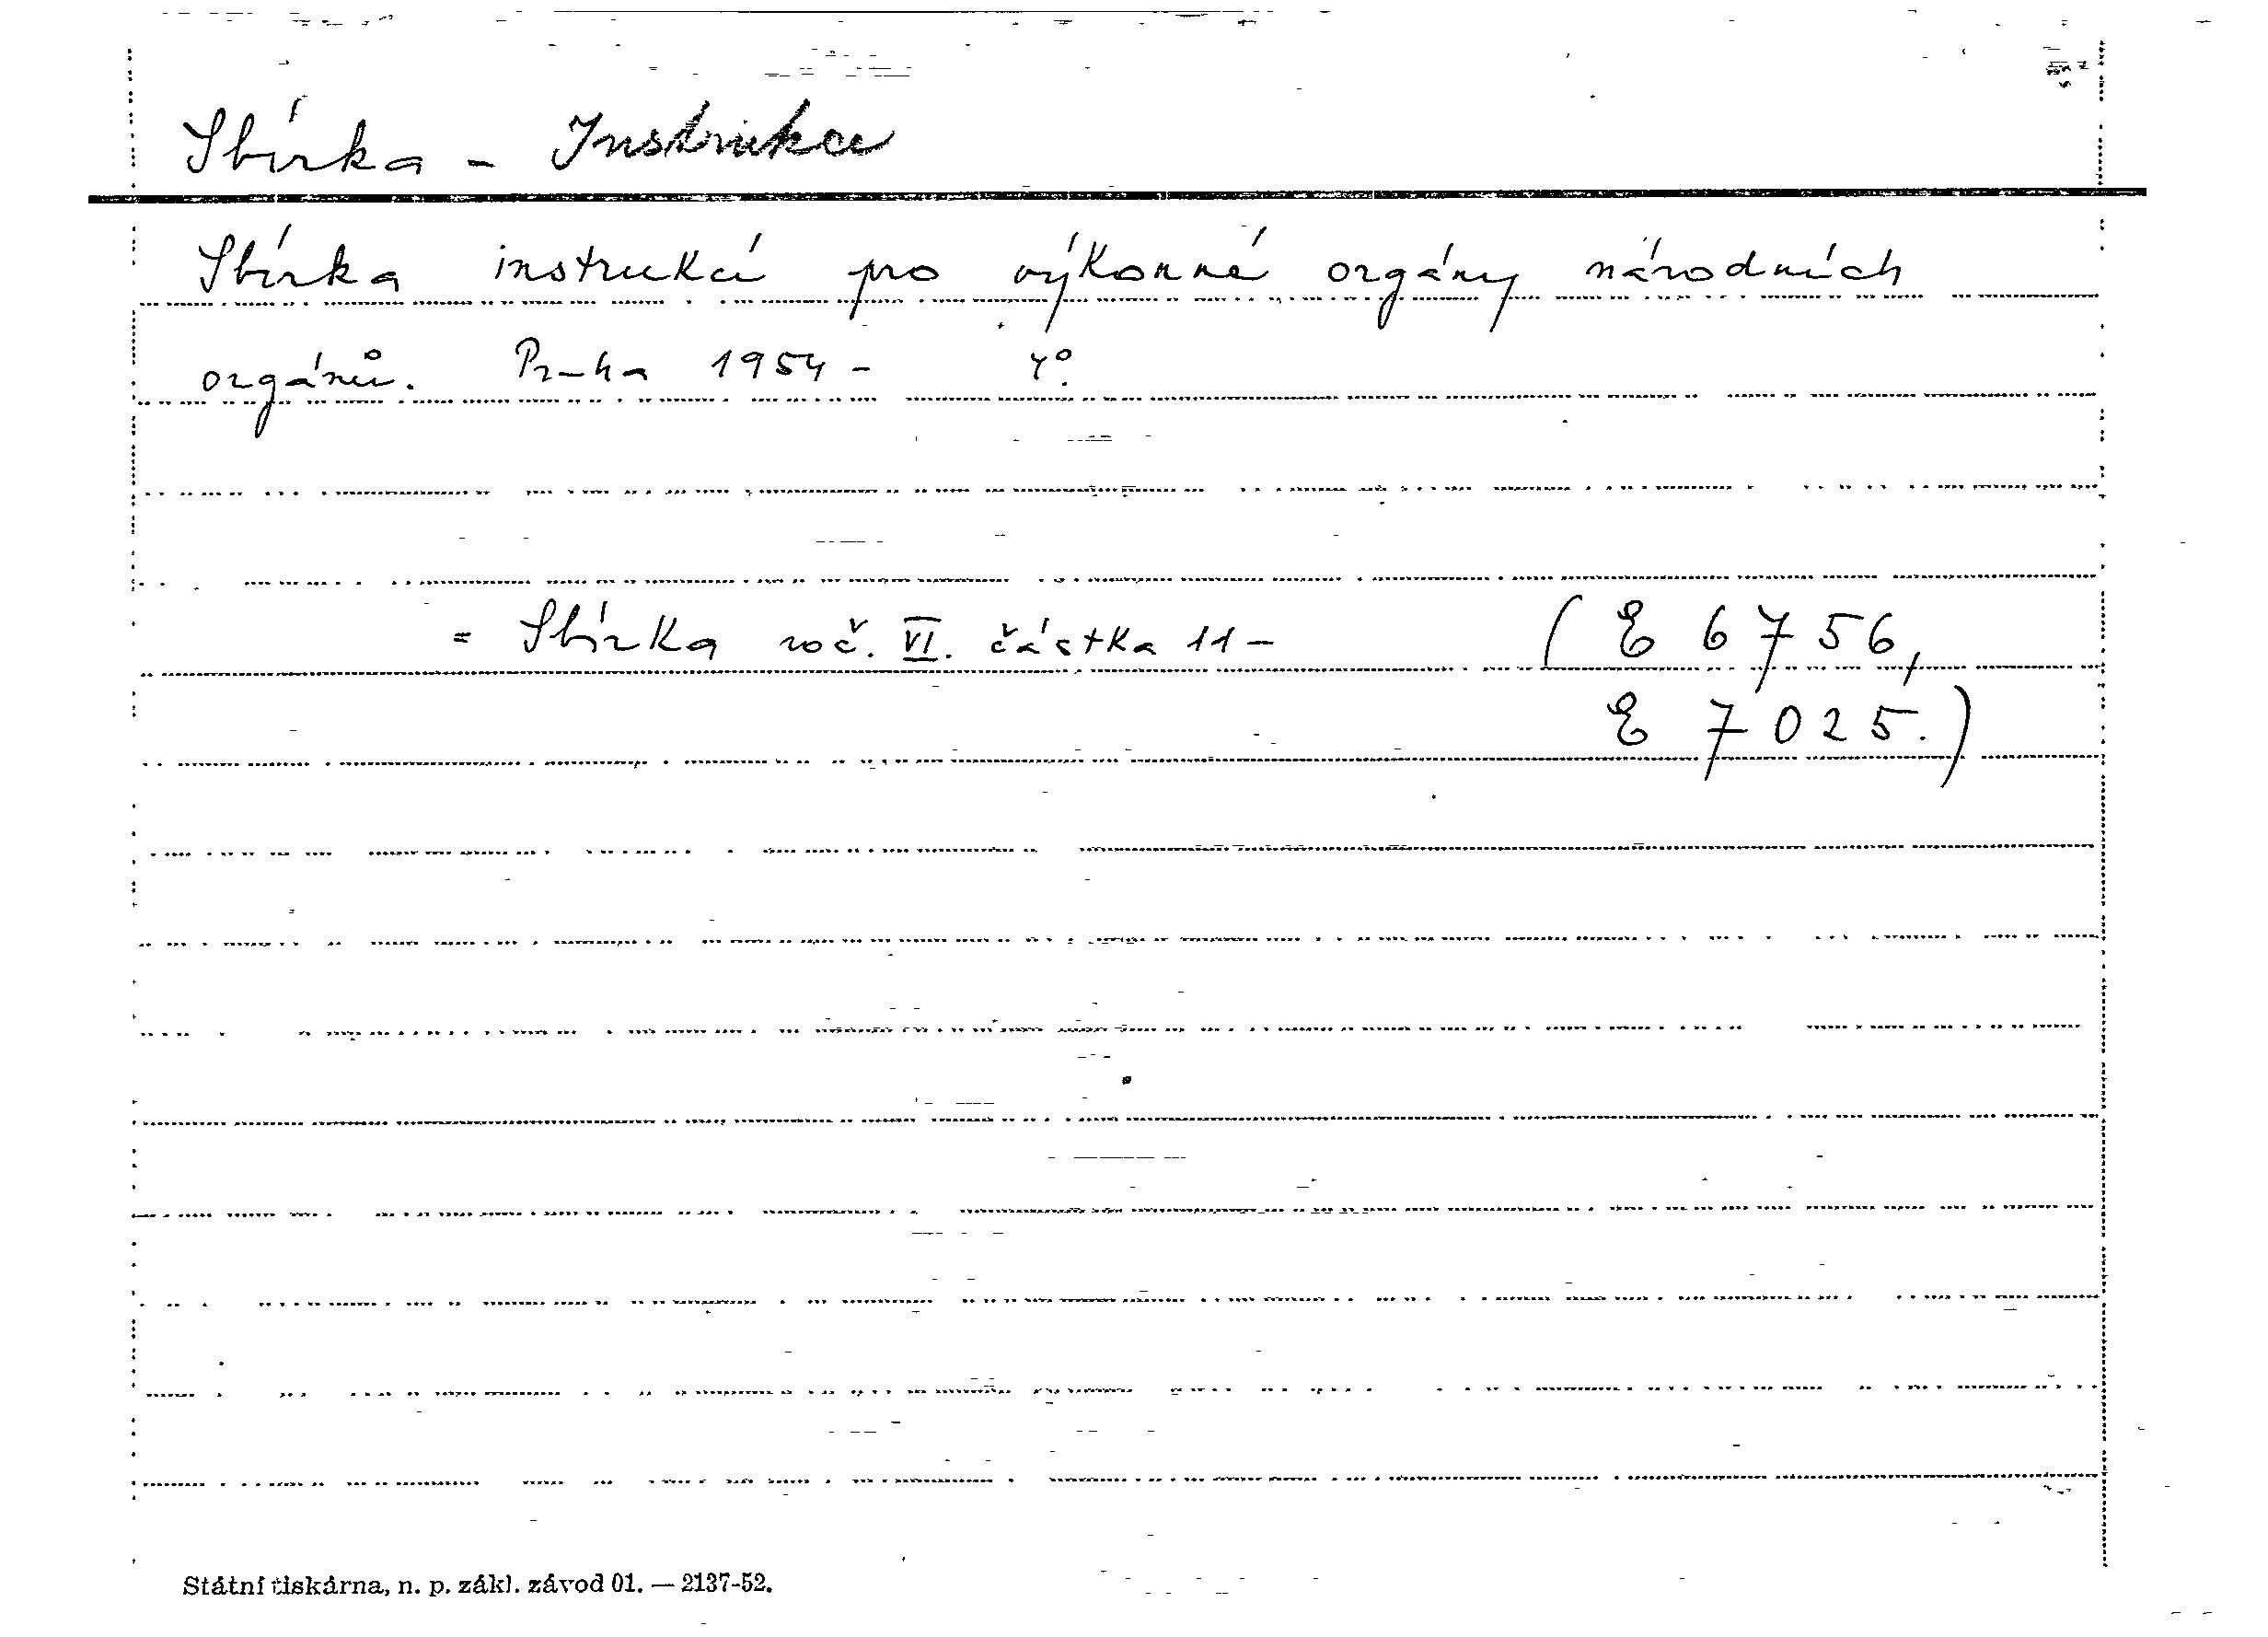 Sbírka - Instrukce
Sbírka instrukcí pro výkonné orgány národních
orgánů. Praha 1954 - 4°.
= Sbírka roč. VI. částka 11 - (E 6756,
E 7025.)
Státní tiskárna, n. p. zákl. závod 01. — 2137-52.